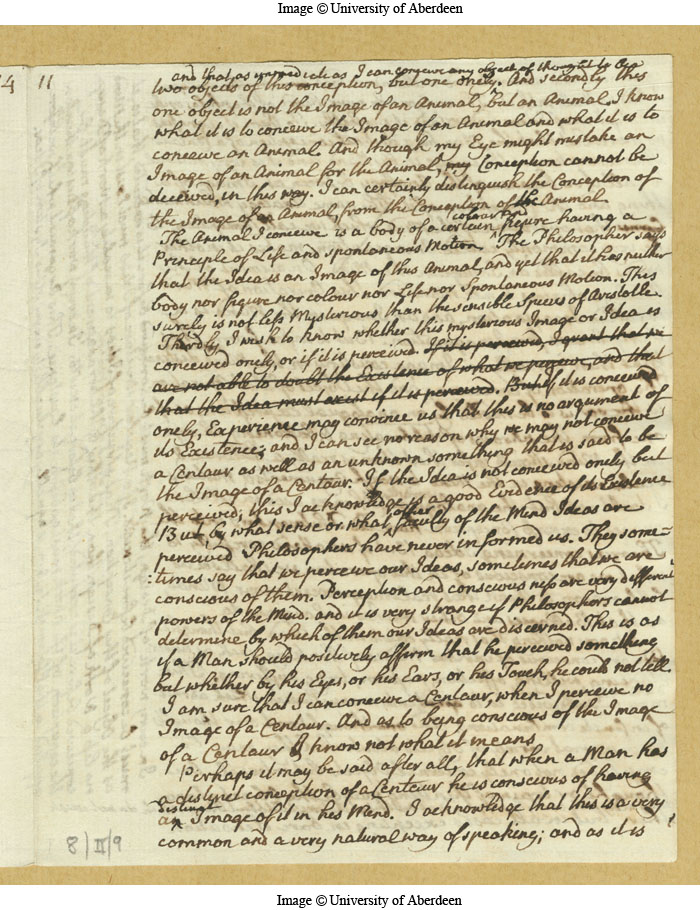 Image © University of Aberdeen
4 11
and that as I can conceive any object of thought to be
two objects of this conception, but one onely. And secondly this
one object is not the Image of an Animal, but an Animal. I know
what it is to conceive the Image of an Animal and what it is to
conceive an Animal. And though my Eye might mistake an
Image of an Animal for the Animal, my Conception cannot be
deceived, in this way. I can certainly distinguish the Conception of
the Image of an Animal, from the Conception of the Animal
colour and
The Animal I conceive is a body of a certain ^ figure having a
Principle of Life and spontaneous Motion. The Philosopher says
that the Idea is an Image of this Animal, and yet that it has neither
body nor figure nor colour nor Life nor Spontaneous Motion. This
surely is not less Mysterious than the sensible Species of Aristotle.
Thirdly I wish to know whether this mysterious Image or Idea is
conceived onely, or if it is perceived. If it is perceived, I grant that we
are not able to doubt the Existence of what we perceive, and that
that the Idea must exist if it is perceived. But if it is conceived
onely, Experience may convince us that this is no argument of
its Existence; and I can see no reason why we may not conceive
a Centaur as well as an unknown something that is said to be
the Image of a Centaur. If the Idea is not conceived onely but
perceived, this I acknowledge is a good Evidence of its Existence
other
But by what sense or what ^ faculty of the Mind Ideas are
perceived Philosophers have never informed us. They some=
:times say that we perceive our Ideas, sometimes that we are
conscious of them. Perception and consciousness are very different
powers of the Mind. and it is very strange if Philosophers cannot
determine by which of them our Ideas are discerned. This is as
if a Man should positively affirm that he perceived something
but whether by his Eyes, or his Ears, or his Touch, he could not tell.
I am sure that I can conceive a Centaur, when I perceive no
Image of a Centaur. And as to being conscious of the Image
of a Centaur I know not what it means
Perhaps it may be said after all, that when a Man has
a distinct conception of a Centaur he is conscious of having
distinct
a ^ Image of it in his Mind. I acknowledge that this is a very
common and a very natural way of speaking; and as it is
8/II/9
Image © University of Aberdeen